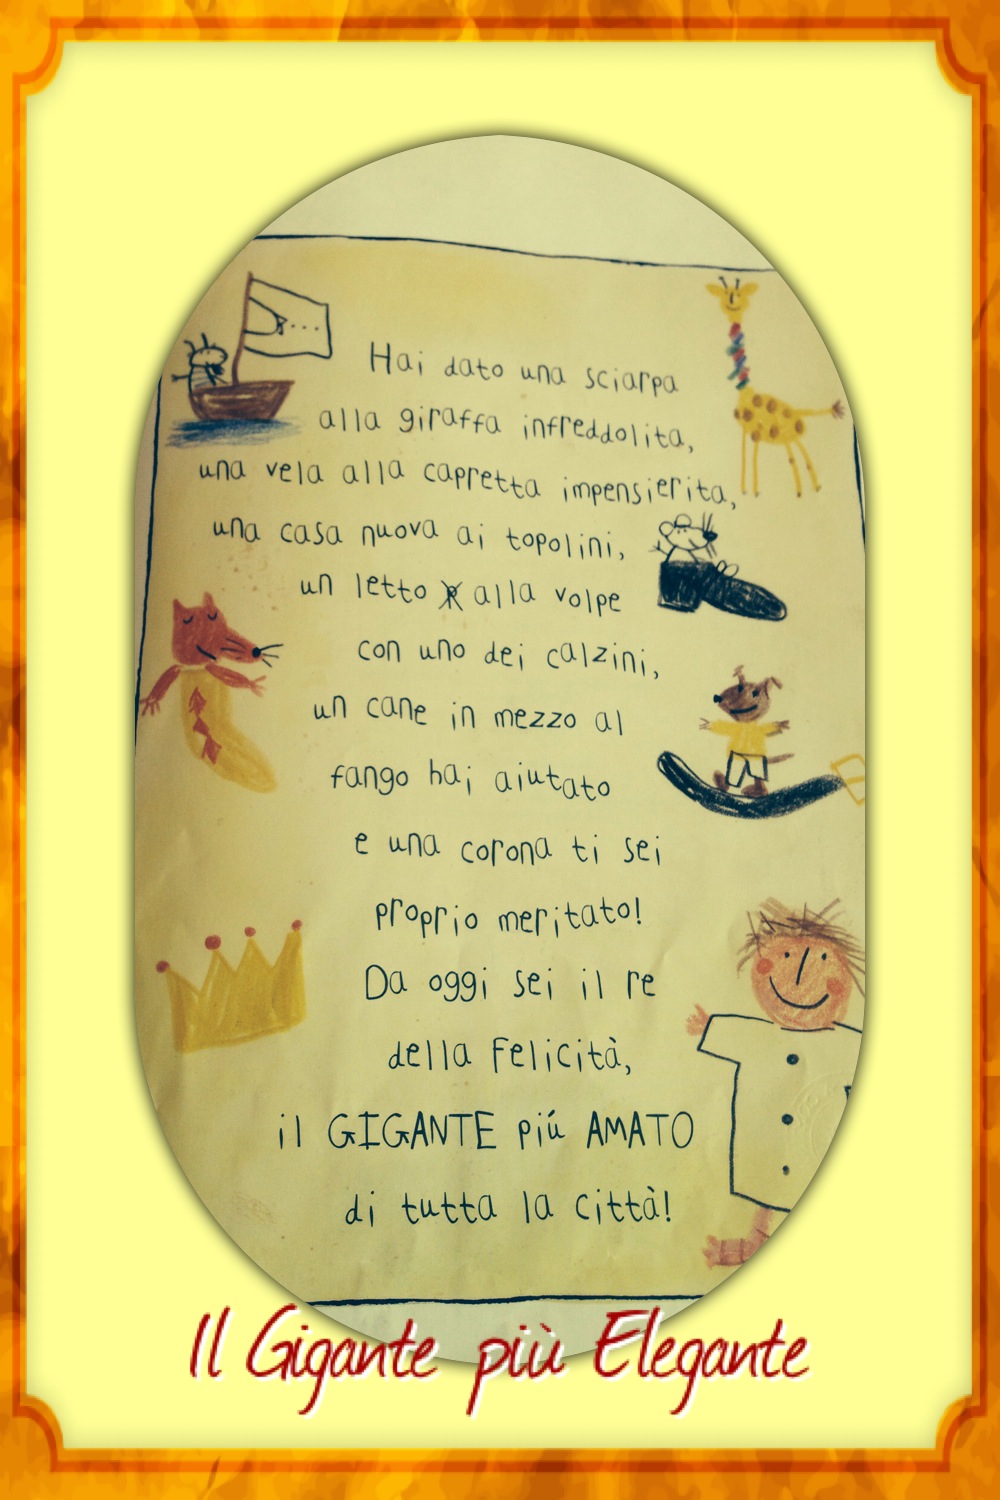 Hai dato una sciarpa
alla giraffa infreddolita,
una vela alla capretta impensierita,
una casa nuova ai topolini,
un letto alla volpe
con uno dei calzini,
un cane in mezzo al
fango hai aiutato
e una corona ti sei
proprio meritato!
Da oggi sei il re
della Felicità,
il GIGANTE piú AMATO
di tutta la città!
Il Gigante più Elegante